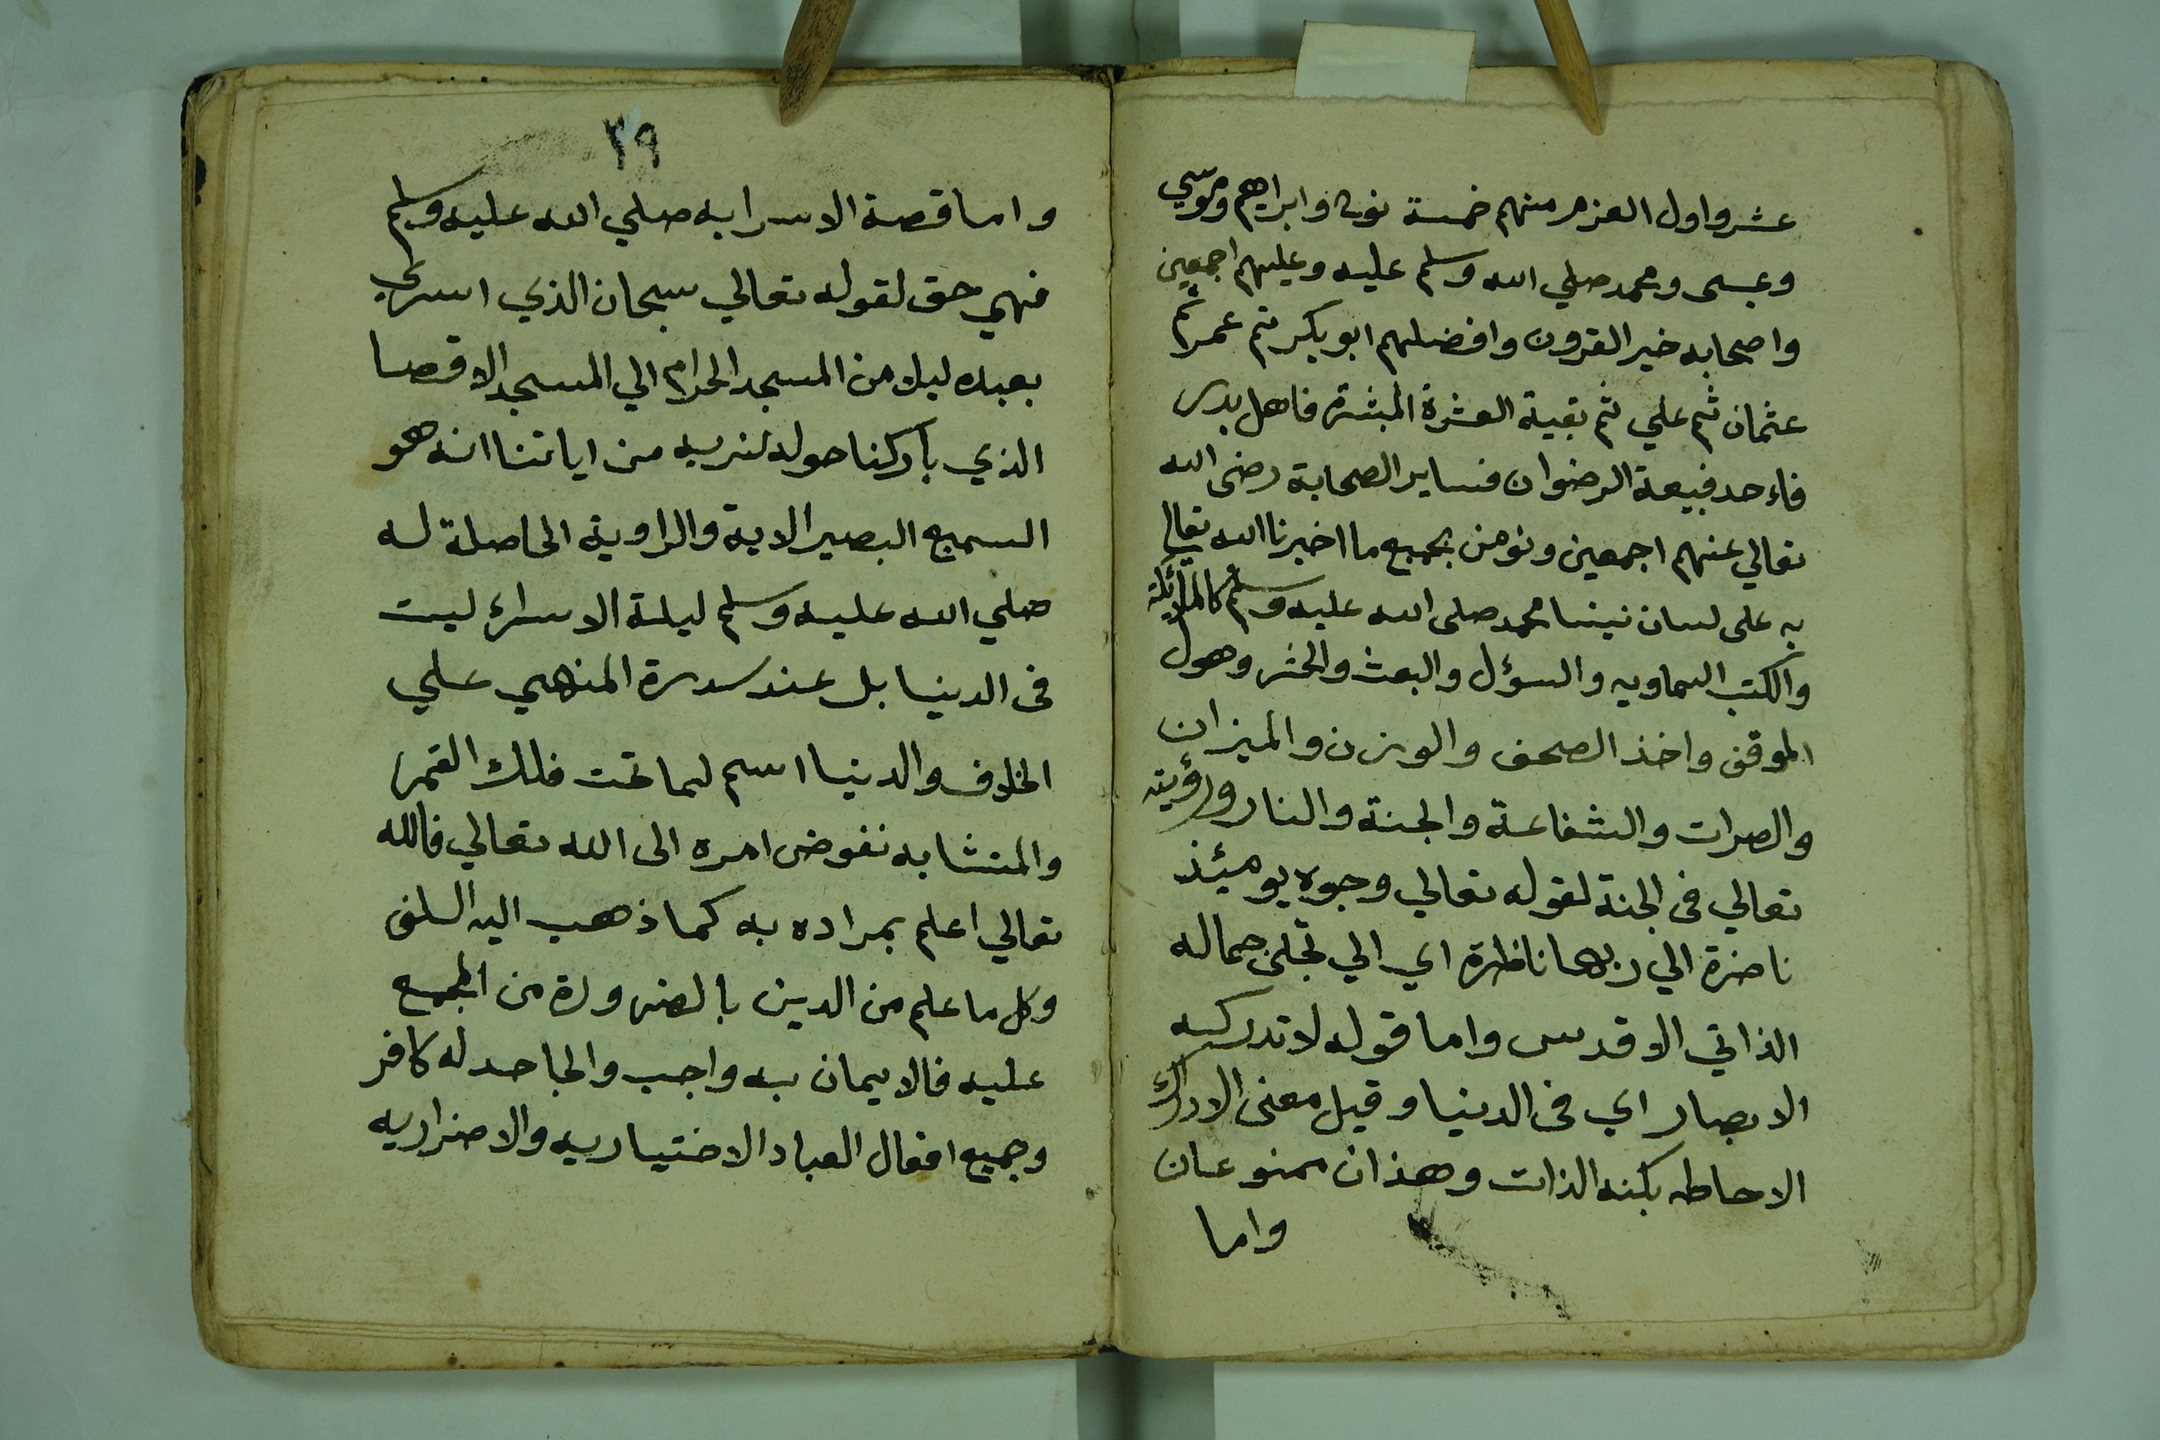 عشر واول العزم منهم خمسة نوح وابراهيم وموسي
وعيسى ومحمد صلي الله وسلم عليه وعليهم اجمعين
واصحابه خير القرون وافضلهم ابو بكر ثم عمر ثم
عثمان ثم علي ثم بقية العشرة المبشرة فاهل بدر
فاحد فبيعة الرضوان فساير الصحابة رضى الله
تعالي عنهم اجمعين ونومن بجميع ما اخبرنا الله تعالي
به على لسان نبينا محمد صلى الله عليه وسلم كالملائكة
والكتب السماويه والسؤل والبعث والحشر وهول
الموقف واخذ الصحف والوزن والميزان
والصرات والشفاعة والجنة والنار ورؤيته
تعالي فى الجنة لقوله تعالي وجوه يومئذ
ناضرة الي ربها ناظرة اي الي تجلى جماله
الذاتي الاقدس واما قوله لا تدركه
الابصار اي فى الدنيا وقيل معنى الادراك
الاحاطه بكنه الذات وهذان ممنوعان
واما
٣٩
واما قصة الاسرا به صلي الله عليه وسلم
فهي حق لقوله تعالي سبحان الذي اسري
بعبده ليلا من المسجد الحرام الي المسجد الاقصا
الذي باركنا حوله لنريه من اياتنا انه هو
السميع البصير الاية والراوية الحاصلة له
صلي الله عليه وسلم ليلة الاسراء ليست
فى الدنيا بل عند سدرة المنتهي علي
الخلاف والدنيا اسم لما تحت فلك القمر
والمتشابه نفوض امره الى الله تعالي فالله
تعالي اعلم بمراده به كما ذهب اليه السلف
وكل ما علم من الدين بالضرورة من المجمع
عليه فالايمان به واجب والجاحد له كافر
وجميع افعال العباد الاختياريه والاضراريه